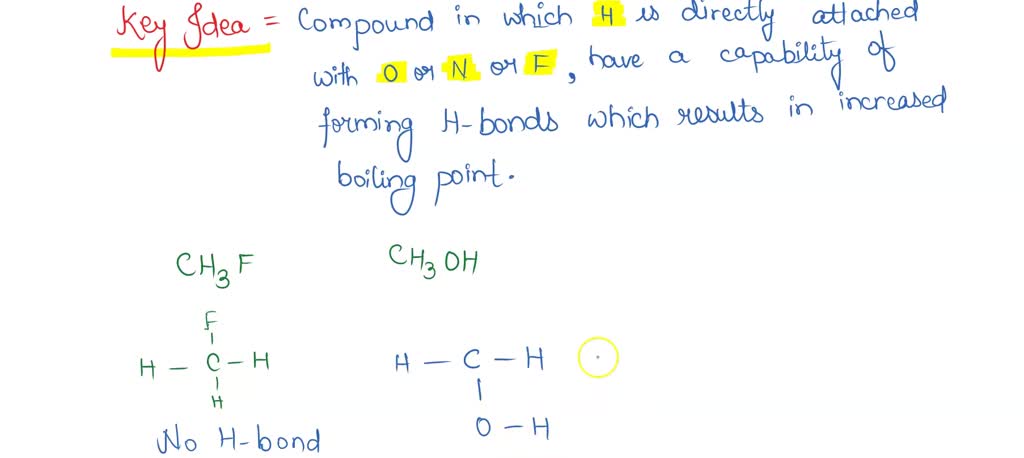 Key Idea = Compound in which H is directly attached
with O or N or F, have a capability of
forming H-bonds which results in increased
boiling point.
CH₃F CH₃OH
F
H – C – H H – C – H
H O – H
No H-bond